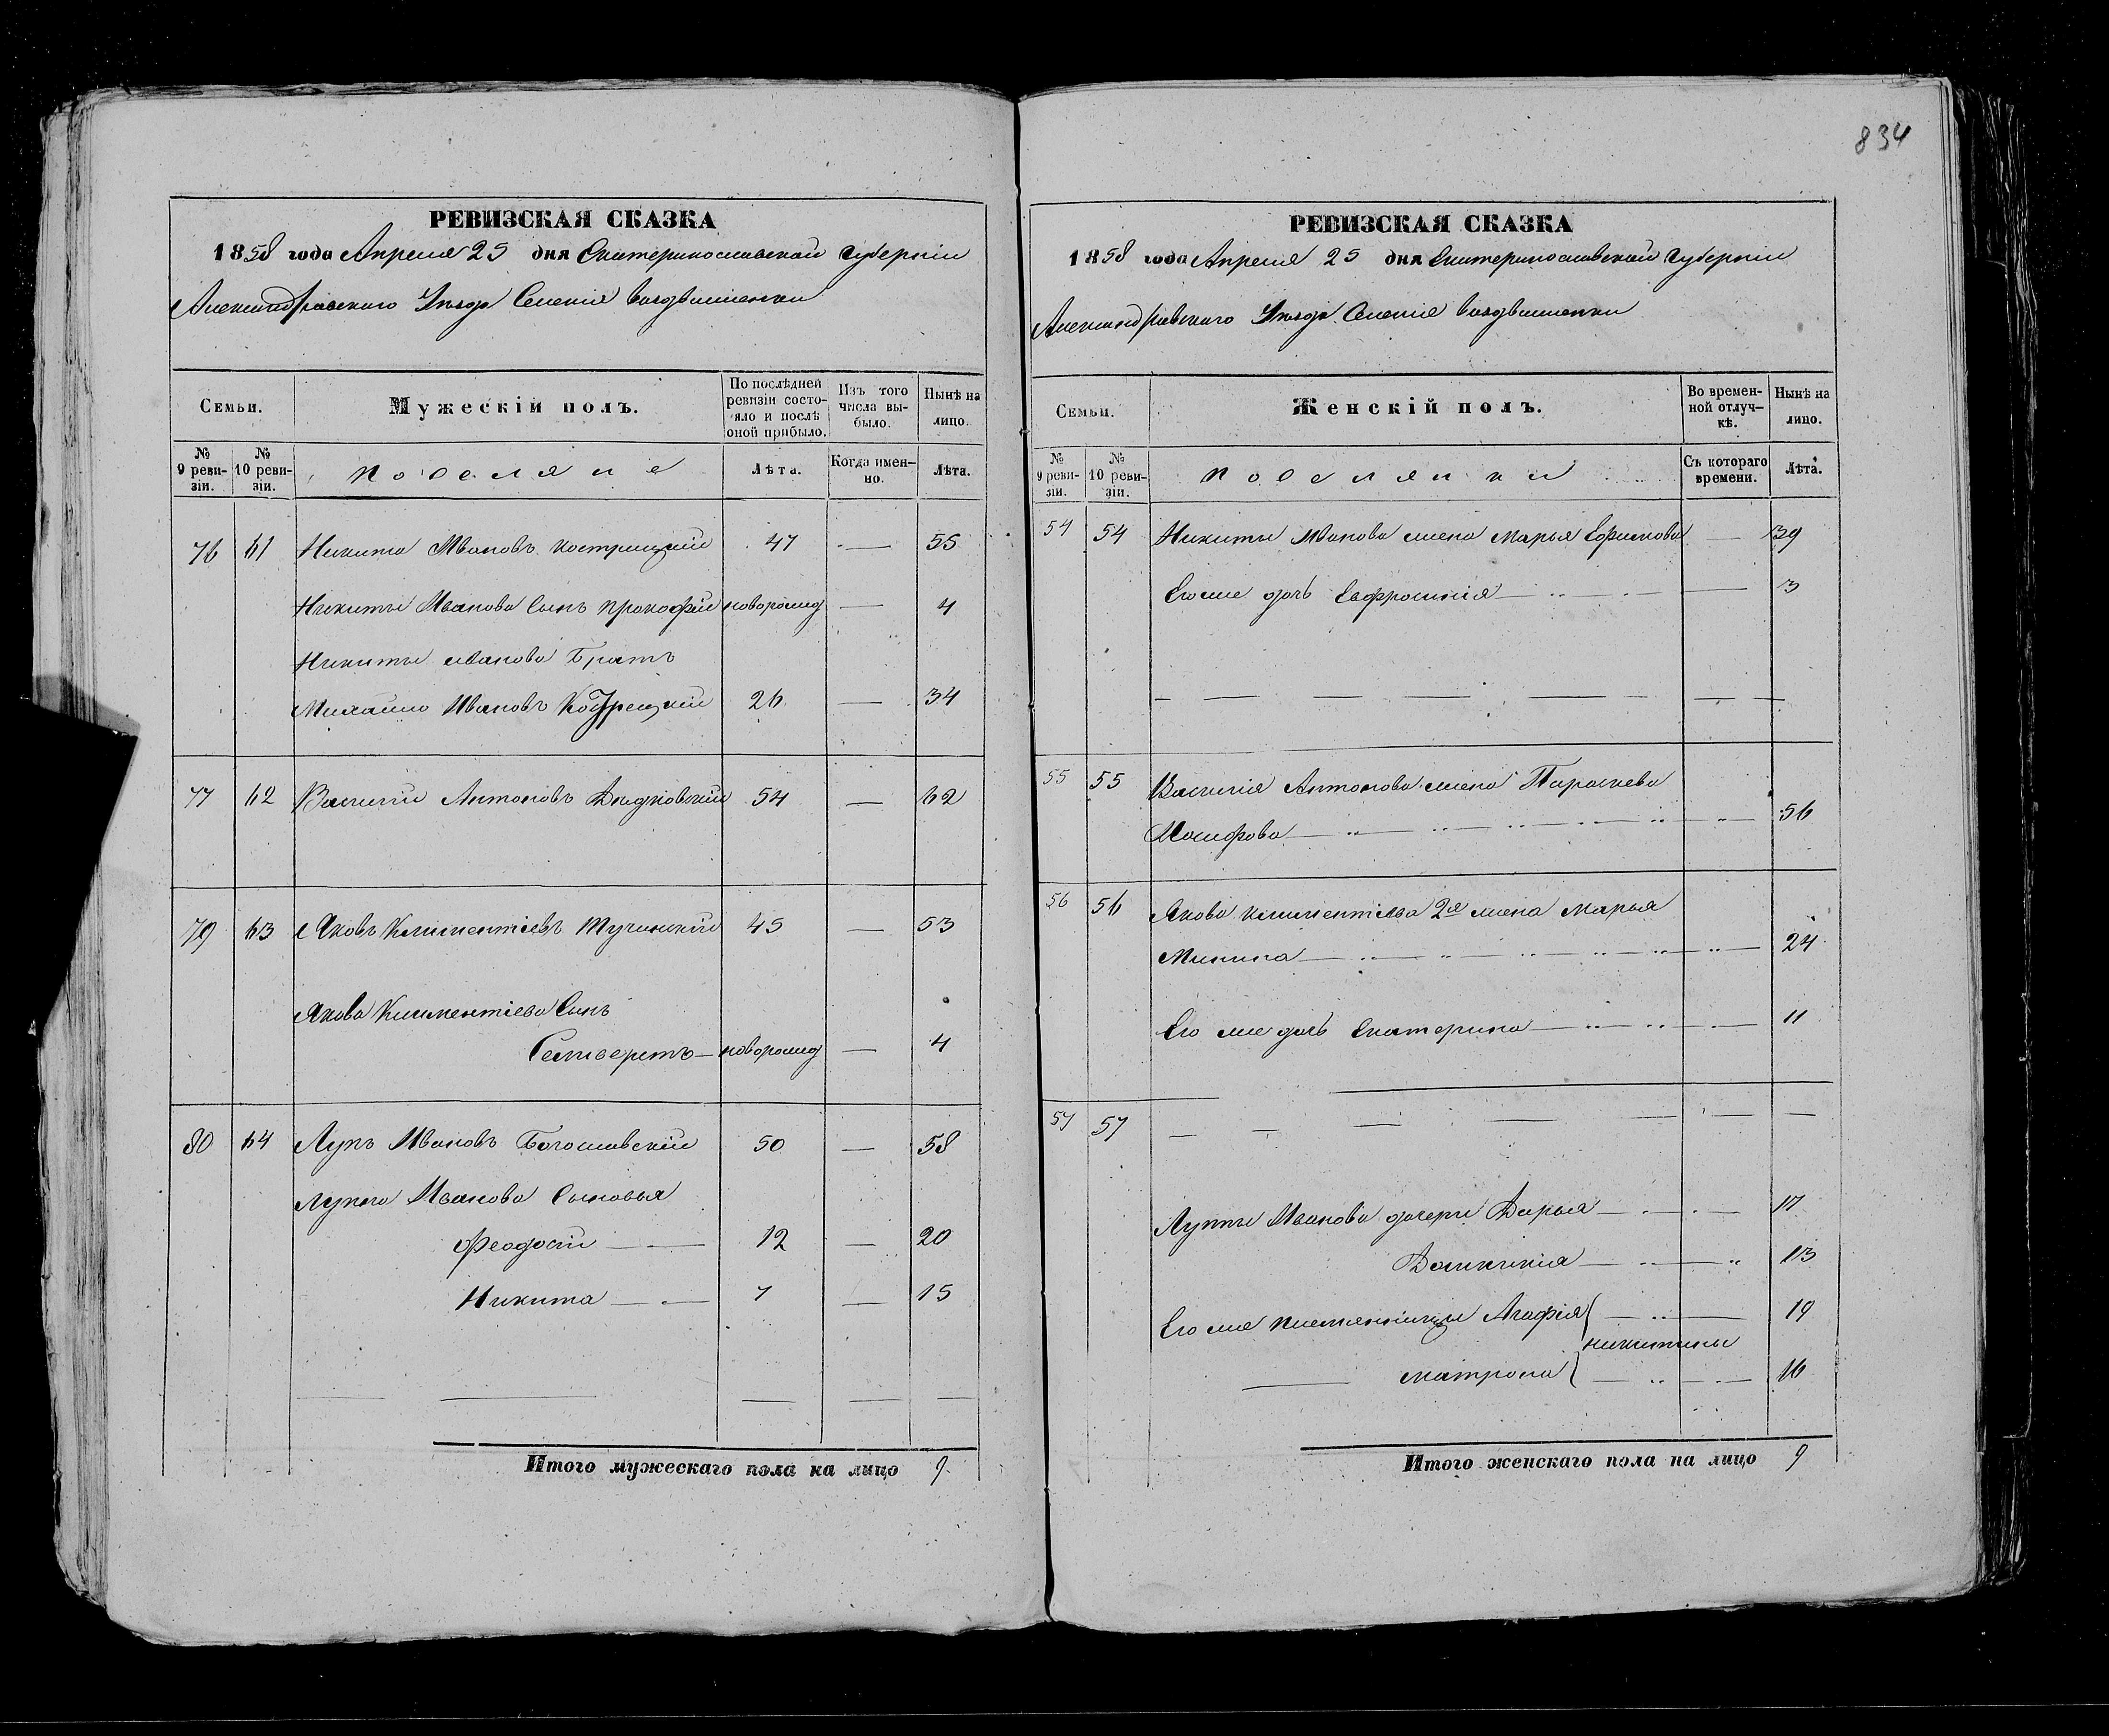 834
РЕВИЗСКАЯ СКАЗКА
1858 года Апреля 25 дня Екатеринославской Губернiи
Александровскаго Уѣзда Селенiя Воздвиженки
Семьи.
Мужескiй полъ.
По послѣдней ревизiи состо-
яло и послѣ
оной прибыло.
Изъ того
числа вы-
было.
Нынѣ на
лицо.
№
9 реви-
зiи.
№
10 реви-
зiи.
Поселяне
Лѣта.
Когда имен-
но.
Лѣта.
76 61 Никита Ивановъ Кострицкiй 47 — 55
Никиты Иванова Сынъ Прокофiй новорожд — 4
Никиты Иванова Братъ
Михайло Ивановъ Кострецкiй 26 — 34
77 62 Василiй Антоновъ Дидковскiй 54 — 62
79 63 Яковъ Климентiевъ Тучинскiй 45 — 53
Якова Климентiева Сынъ
Селиверстъ — новорожд — 4
80 64 Лупъ Ивановъ Богославскiй 50 — 58
Луппа Иванова Сыновья
Феодосiй — 12 — 20
Никита — 7 — 15
Итого мужескаго пола на лицо 9
РЕВИЗСКАЯ СКАЗКА
1858 года Апреля 25 дня Екатеринославской Губернiи
Александровскаго Уѣзда Селенiя Воздвиженки
Семьи.
Женскiй полъ.
Во времен-
ной отлуч-
кѣ.
Нынѣ на
лицо.
№
9 реви-
зiи.
№
10 реви-
зiи.
Поселянки
Съ котораго
времени.
Лѣта.
54 54 Никиты Иванова жена Марья Ефимова — 39
Его же дочь Евфросинiя — 3
55 55 Василiя Антонова жена Параскева
Иосифова — 56
56 56 Якова Климентiева 2я жена Марья
Минина — 24
Его же дочь Екатерина — 11
57 57
Луппы Иванова дочери Дарья — 17
Домникiя — 13
Его же племянницы Агафiя — 19
Никитины
Матрона — 16
Итого женскаго пола на лицо 9